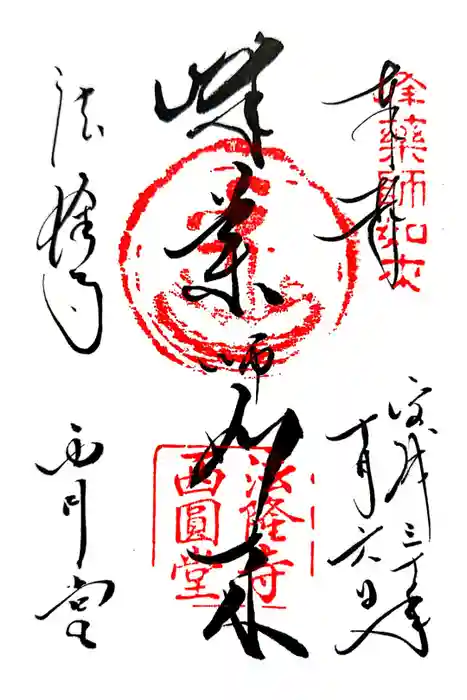 奉拝
峰薬師如来
平成三十年
十月六日
峯薬師如来
法隆寺
西圓堂
法隆寺
西円堂